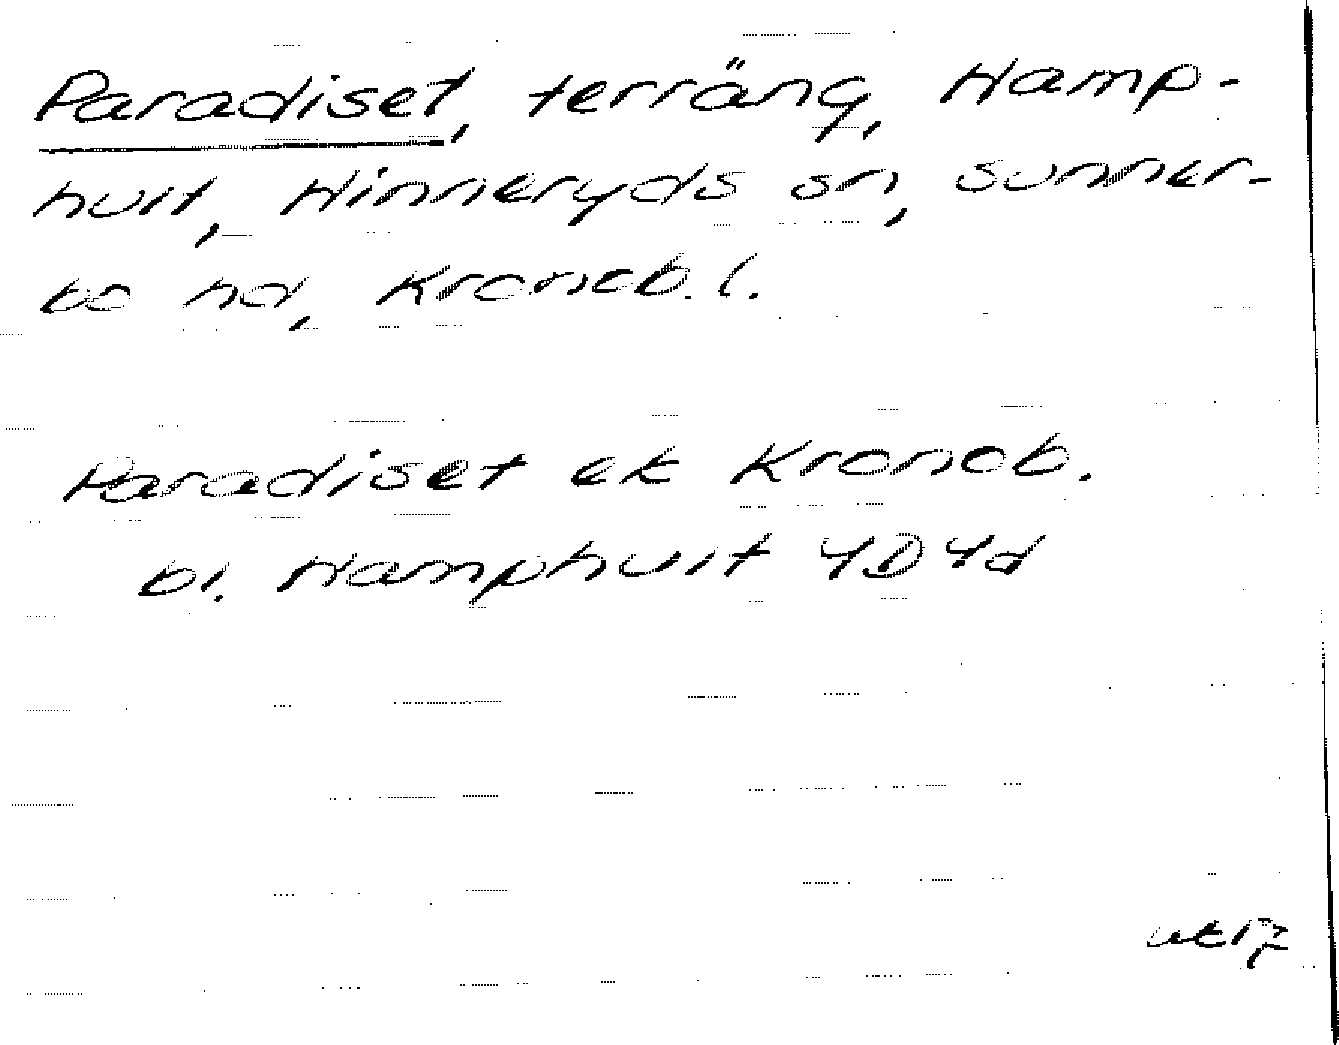 Paradiset, terräng, Hamp-
hult, Hinneryds sn, Sunner-
bo hd, Kronob. l.
Paradiset ek Kronob.
bl. Hamphult 4D 4d